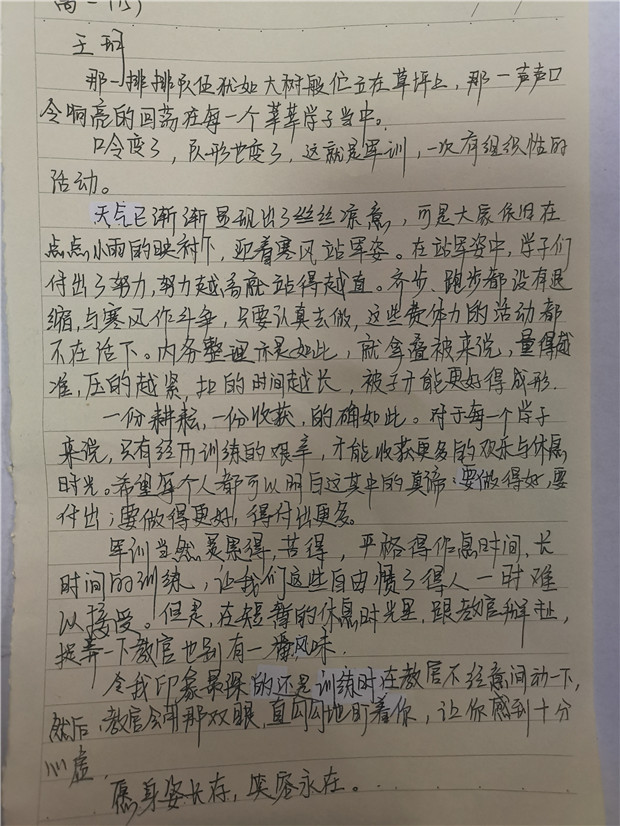 高一(15)
王珂
那一排排队伍犹如大树般伫立在草坪上,那一声声口
令响亮的回荡在每一个莘莘学子当中。
口令变了,队形也变了,这就是军训,一次有组织性的
活动。
天气已渐渐显现出了丝丝凉意,可是大家依旧在
点点小雨的映衬下,迎着寒风站军姿。在站军姿中,学子们
付出了努力,努力越高就站得越直。齐步、跑步都没有退
缩,与寒风作斗争,只要认真去做,这些费体力的活动都
不在话下。内务整理亦是如此,就拿叠被来说,量得越
准,压的越紧,扣的时间越长,被子才能更好得成形.
一份耕耘,一份收获,的确如此。对于每一个学子
来说,只有经历训练的艰辛,才能收获更多的欢乐与休息
时光。希望每个人都可以明白这其中的真谛:要做得好,要
付出;要做得更好,得付出更多。
军训当然是累得,苦得,严格得作息时间、长
时间的训练,让我们这些自由惯了得人一时难
以接受。但是,在短暂的休息时光里,跟教官聊聊天,
捉弄一下教官也别有一番风味.
令我印象最深的还是训练时在教官不经意间动一下,
然后,教官会用那双眼,直勾勾地盯着你,让你感到十分
心虚.
愿身姿长存,笑容永在。